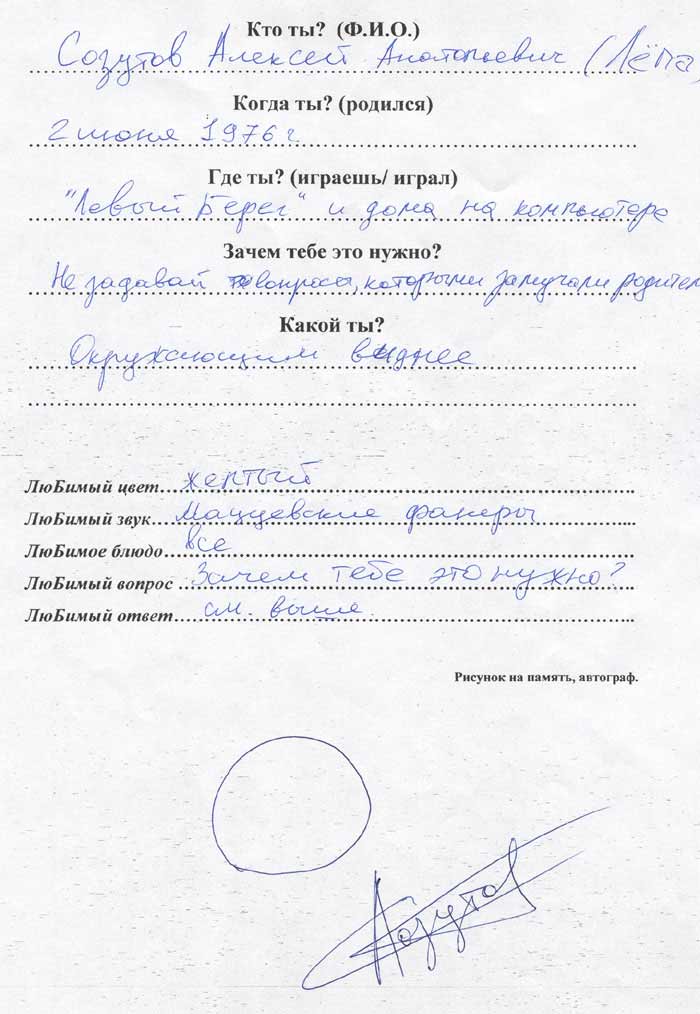 Кто ты? (Ф.И.О.)
Созутов Алексей Анатольевич (Лёпа)
Когда ты? (родился)
2 июня 1976 г.
Где ты? (играешь/ играл)
"Левый Берег" и дома на компьютере
Зачем тебе это нужно?
Не задавай те вопросы, которыми замучали родител
Какой ты?
Окружающим виднее
ЛюБимый цвет желтый
ЛюБимый звук фанеры
ЛюБимое блюдо все
ЛюБимый вопрос Зачем тебе это нужно?
ЛюБимый ответ см. выше.
Рисунок на память, автограф.
Созутов